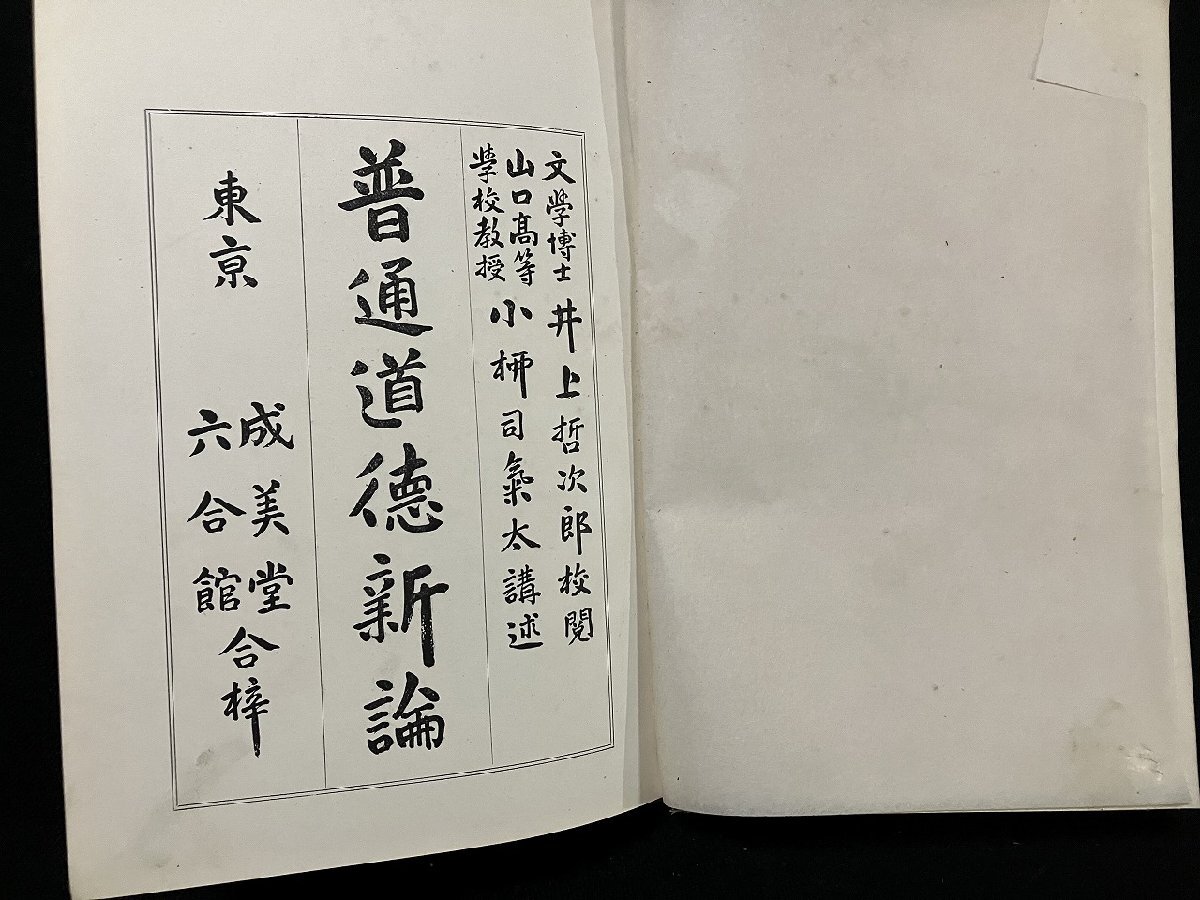 文學博士 井上哲次郎校閲
山口髙等學校教授 小栁司氣太講述
普通道德新論
東京 成美堂 六合館 合梓